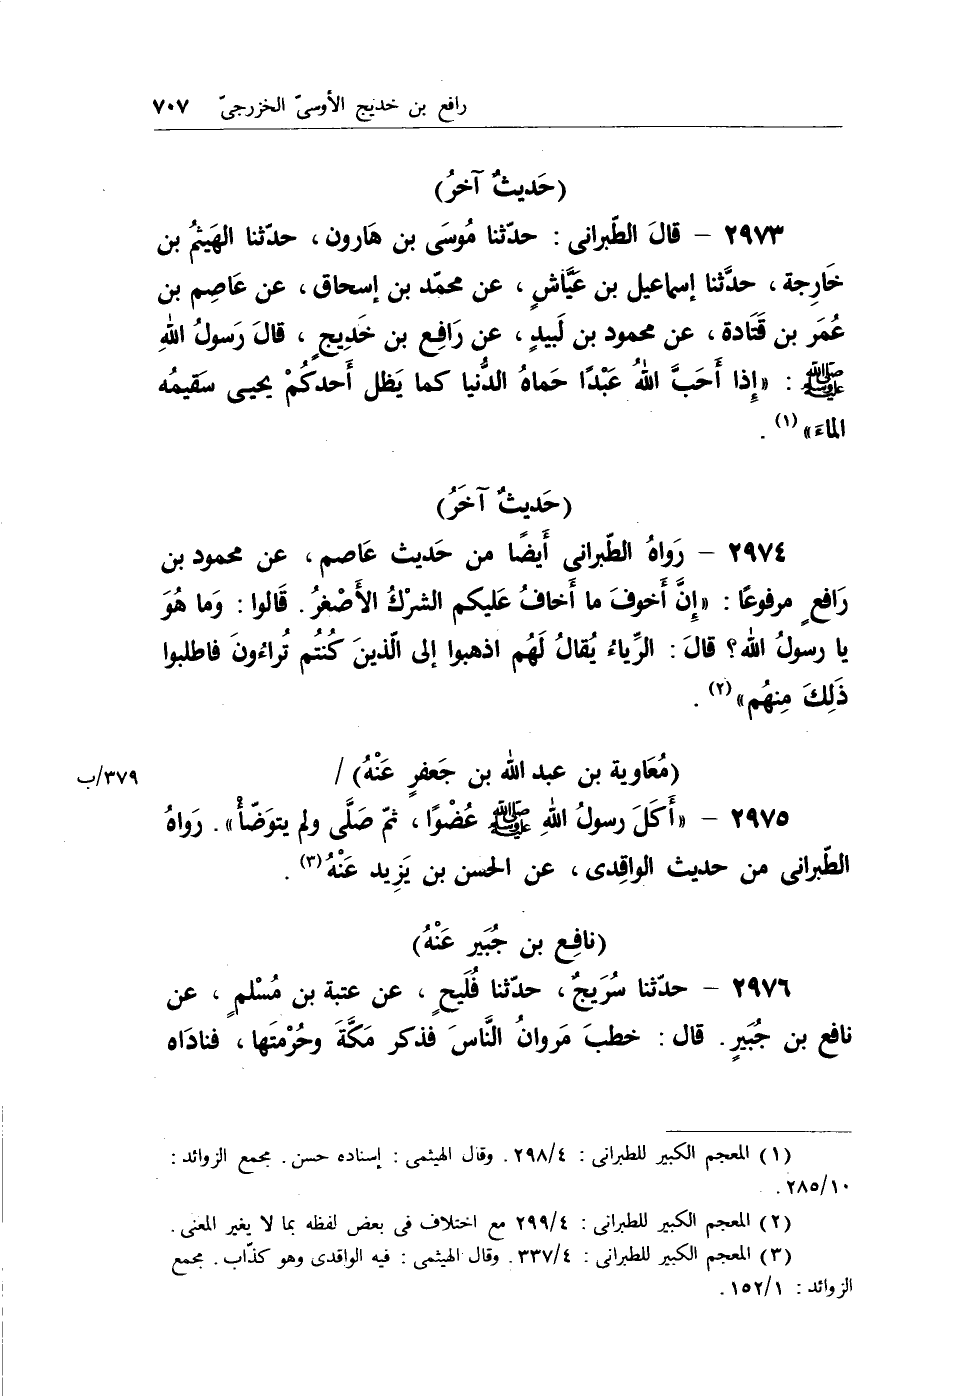 رافع بن خديج الأوسىّ الخزرجىّ ٧٠٧
(حَديثٌ آخرُ)
٢٩٧٣ – قالَ الطّبرانى : حدّثنا مُوسَى بن هَارون ، حدّثنا الهَيثُم بن
خَارِجة ، حدَّثنا إسماعيل بن عَيَّاشٍ ، عن محمّد بن إسحاق ، عن عَاصِم بن
عُمَر بن قَتَادة ، عن محمود بن لَبيدٍ ، عن رَافِع بن خَدِيجٍ ، قالَ رَسولُ اللهِ
ﷺ : «إِذا أَحَبَّ اللهُ عَبْدًا حَماهُ الدُّنيا كما يَظل أَحدكُمْ يحيى سَقيمُه
الماءَ»(١) .
(حَديثٌ آخَرُ)
٢٩٧٤ – رَواهُ الطّبرانى أَيضًا من حَديث عَاصم ، عن محمود بن
رَافعٍ مرفوعًا : «إِنَّ أَخوفَ ما أَخافُ عَليكم الشركُ الأَصْغرُ. قَالوا : وَما هُوَ
يا رسولُ الله؟ قالَ : الرِّياءُ يُقالُ لَهُم اذهبوا إلى الّذينَ كُنتُم تُراءُونَ فاطلبوا
ذَلِكَ مِنهُم»(٢) .
(مُعَاوية بن عبد الله بن جَعفرٍ عَنْهُ) /
٣٧٩/ب
٢٩٧٥ – «أَكَلَ رسولُ اللهِ ﷺ عُضْوًا ، ثمّ صَلَّى ولم يتوَضّأْ» . رَواهُ
الطّبرانى من حديث الواقِدى ، عن الحسن بن يَزِيد عَنْهُ(٣) .
(نافِع بن جُبَير عَنْهُ)
٢٩٧٦ – حدّثنا سُرَيجٌ ، حدّثنا فُلَيحٍ ، عن عتبة بن مُسْلمٍ ، عن
نافع بن جُبَيرٍ. قال : خطبَ مَروانُ النَّاسَ فذكر مَكَّةَ وحُرْمَتَها ، فنادَاه
(١) المعجم الكبير للطبرانى : ٢٩٨/٤ . وقال الهيثمى : إسناده حسن . مجمع الزوائد :
٢٨٥/١٠ .
(٢) المعجم الكبير للطبرانى : ٢٩٩/٤ مع اختلاف فى بعض لفظه بما لا يغير المعنى .
(٣) المعجم الكبير للطبرانى : ٣٣٧/٤ . وقال الهيثمى : فيه الواقدى وهو كذّاب . مجمع
الزوائد : ١٥٢/١ .